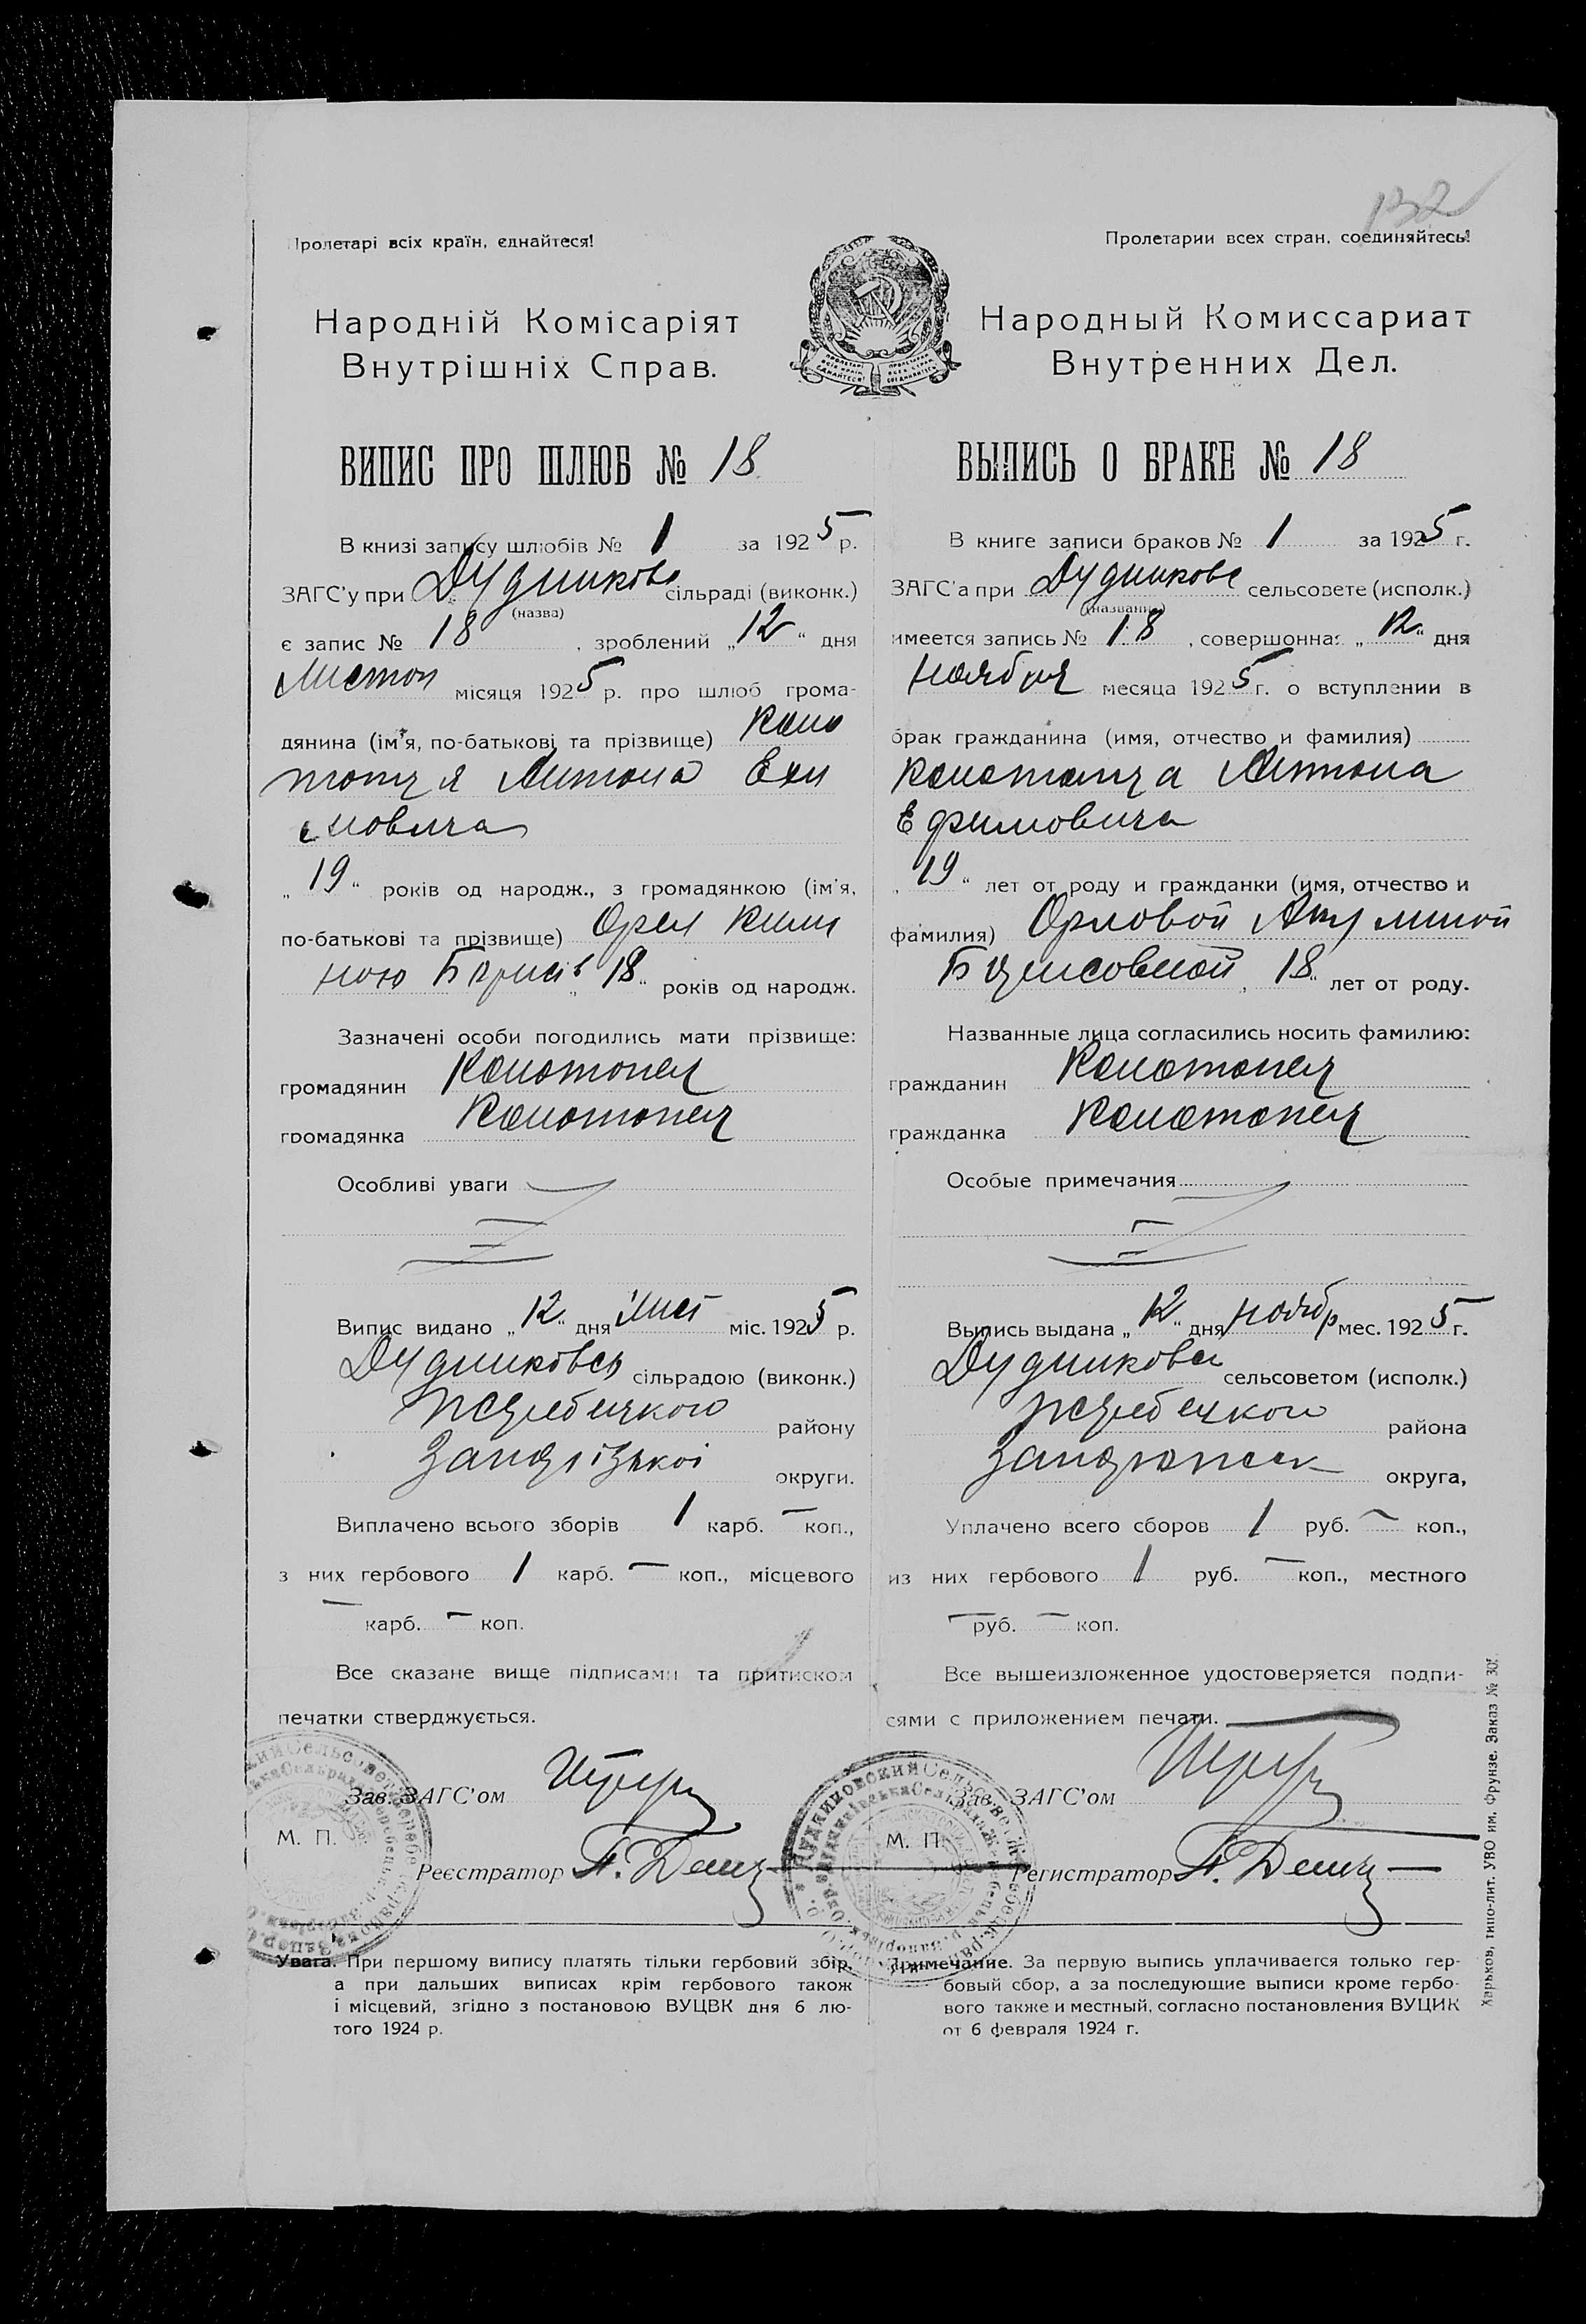 132
Пролетарі всіх країн, єднайтеся!
Народній Комісаріят
Внутрішніх Справ.
ВИПИС ПРО ШЛЮБ № 18
В книзі запису шлюбів № 1 за 1925 р.
ЗАГС'у при Дудниково сільраді (виконк.)
(назва)
є запис № 18, зроблений „12“ дня
Листоп місяця 1925 р. про шлюб грома-
дянина (ім'я, по-батькові та прізвище) Коно
топця Антона Ехи
мовича
„19“ років од народж., з громадянкою (ім'я,
по-батькові та прізвище) Орел
ною Борисів „18“ років од народж.
Зазначені особи погодились мати прізвище:
громадянин Конотопец
громадянка Конотопец
Особливі уваги
Випис видано „12“ дня Лист міс. 1925 р.
Дудниковсь сільрадою (виконк.)
Жеребецкого району
Запорізької округи.
Виплачено всього зборів 1 карб. — коп.,
з них гербового 1 карб. — коп., місцевого
— карб. — коп.
Все сказане вище підписами та притиском
печатки стверджується.
Зав. ЗАГС'ом
М. П.
Реєстратор
Увага. При першому випису платять тільки гербовий збір,
а при дальших виписах крім гербового також
і місцевий, згідно з постановою ВУЦВК дня 6 лю-
того 1924 р.
Пролетарии всех стран, соединяйтесь!
Народный Комиссариат
Внутренних Дел.
ВЫПИСЬ О БРАКЕ № 18
В книге записи браков № 1 за 1925 г.
ЗАГС'а при Дудникове сельсовете (исполк.)
(название)
имеется запись № 18, совершонная „12“ дня
ноября месяца 1925 г. о вступлении в
брак гражданина (имя, отчество и фамилия)
Конотопца Антона
Ефимовича
„19“ лет от роду и гражданки (имя, отчество и
фамилия) Орловой Акулиной
Борисовной „18“ лет от роду.
Названные лица согласились носить фамилию:
гражданин Конотопец
гражданка Конотопец
Особые примечания
Выпись выдана „12“ дня ноябр мес. 1925 г.
Дудниковск сельсоветом (исполк.)
Жеребецкого района
Запорожск округа,
Уплачено всего сборов 1 руб. — коп.,
из них гербового 1 руб. — коп., местного
— руб. — коп.
Все вышеизложенное удостоверяется подпи-
сями с приложением печати.
Зав. ЗАГС'ом
М. П.
Регистратор
Примечание. За первую выпись уплачивается только гер-
бовый сбор, а за последующие выписи кроме гербо-
вого также и местный, согласно постановления ВУЦИК
от 6 февраля 1924 г.
Харьков, типо-лит. УВО им. Фрунзе. Заказ №